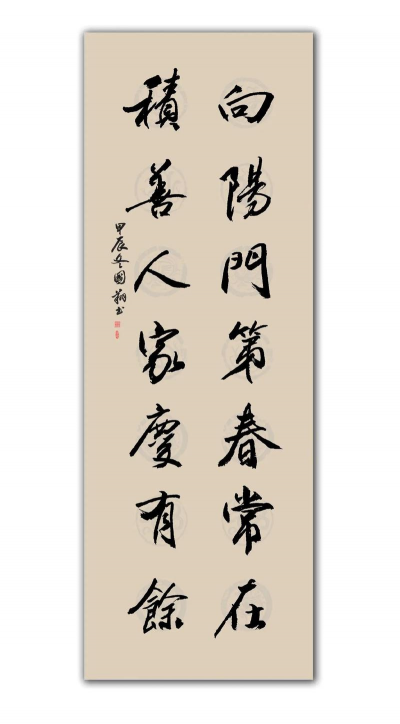 向陽門第春常在
積善人家慶有餘
甲辰冬國翔書